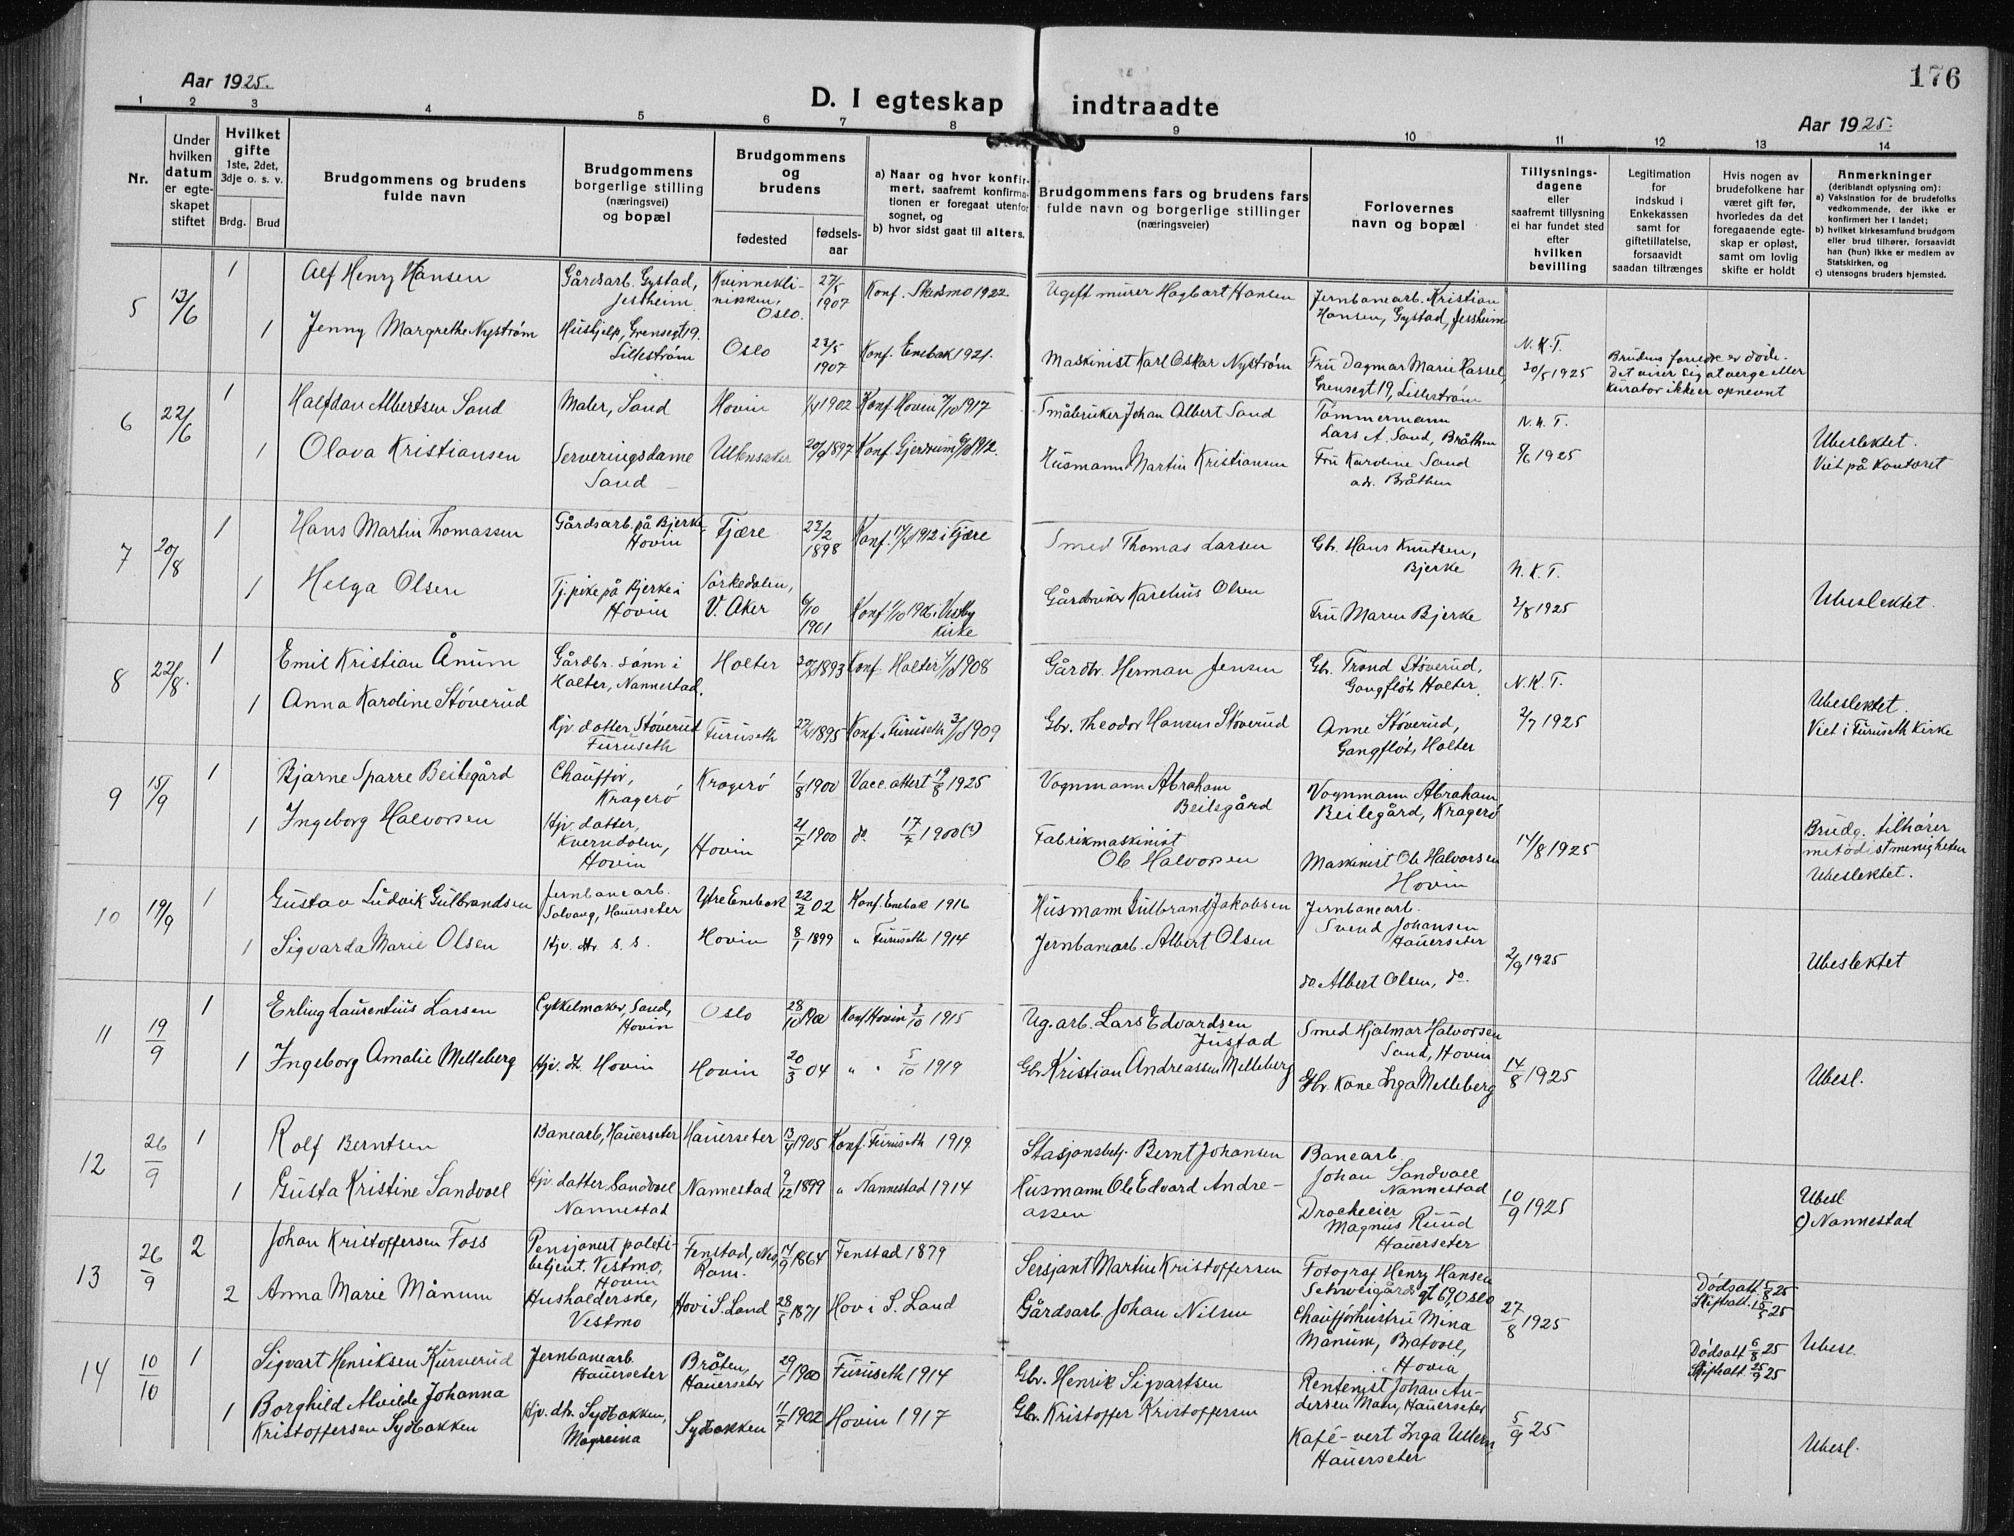 176
Aar 1925.
D. I egteskap indtraadte
Aar 1925.
1 2 3 4 5 6 7 8 9 10 11 12 13 14
Nr.
Under hvilken datum er egte-skapet stiftet
Hvilket gifte 1ste, 2det, 3dje o. s. v.
Brdg. Brud
Brudgommens og brudens fulde navn
Brudgommens borgerlige stilling (næringsvei) og bopæl
Brudgommens og brudens
fødested fødsels-aar
a) Naar og hvor konfir-mert, saafremt konfirma-tionen er foregaat utenfor sognet, og b) hvor sidst gaat til alters.
Brudgommens fars og brudens fars fulde navn og borgerlige stillinger (næringsveier)
Forlovernes navn og bopæl
Tillysnings-dagene eller saafremt tillysning ei har fundet sted efter hvilken bevilling
Legitimation for indskud i Enkekassen samt for giftetillatelse, forsaavidt saadan tiltrænges
Hvis nogen av brudefolkene har været gift før, hvorledes da det foregaaende egte-skap er opløst, samt om lovlig skifte er holdt
Anmerkninger (deriblandt oplysning om): a) Vaksination for de brudefolks vedkommende, der ikke er konfirmert her i landet; b) hvilket kirkesamfund brudgom eller brud tilhører, forsaavidt han (hun) ikke er medlem av Statskirken, og c) utensogns bruders hjemsted.
5 13/6 1 Alf Henry Hansen Gårdsarb. Gystad, Jessheim Kvinnekli-nikken, Oslo. 27/5 1907 Konf. Skedsmo 1922 Ugift murer Hagbart Hansen Jernbanearb. Kristian Hansen, Gystad, Jessheim
1 Jenny Margrethe Nystrøm Hushjelp, Grensegt 19. Lillestrøm Oslo 23/5 1907 Konf. Enebak 1921. Maskinist Karl Oskar Nystrøm Fru Dagmar Marie Hassel, Grensegt 19, Lillestrøm N.K.T. 30/5 1925 Brudens foreldre er døde. Det viser sig at verge eller kurator ikke er opnevnt
6 22/6 1 Halfdan Albertsen Sand Maler, Sand Hovin 1902 Konf Hovin 1917 Småbruker Johan Albert Sand Tømmermann Lars A. Sand, Bråthen N.K.T.
1 Olava Kristiansen Serveringsdame Sand Ullensaker 1897 Konf Gjerdrum 1912. Husmann Martin Kristiansen Fru Karoline Sand adr. Bråthen 8/6 1925 Ubeslektet. Viet på kontoret
7 20/8 1 Hans Martin Thomassen Gårdsarb. på Bjerke, Hovin Fjære 23/2 1898 Konf. 1912 i Fjære Smed Thomas Larsen Gbr. Hans Knutsen, Bjerke N.K.T.
1 Helga Olsen Tj.pike på Bjerke i Hovin Sørkedalen, V. Aker 6/10 1901 Konf. Kirke Gårdbruker Karelius Olsen Fru Maren Bjerke 3/8 1925 Ubeslektet.
8 22/8. 1 Emil Kristian Ånum Gårdbr. sønn i Holter, Nannestad. Holter 1893 Konf Holter 1908 Gårdbr. Herman Jensen Gb. Trond Støverud, Gangfløt, Holter N.K.T.
1 Anna Karoline Støverud Hjv. datter Støverud Furuseth Furuseth 1895 Konf. i Furuseth 1909 Gbr. Theodor Hansen Støverud Anne Støverud, Gangfløt, Holter 2/7 1925 Ubeslektet. Viet i Furuseth Kirke
9 15/9 1 Bjarne Sparre Beilegård Chauffør, Kragerø Kragerø 1/8 1900 Vacc. attest 19/8 1925 Vognmann Abraham Beilegård Vognmann Abraham Beilegård, Kragerø
1 Ingeborg Halvorsen Hjv. datter, Kverndalen, Hovin Hovin 21/7 1900 do. 17/7 1900(?) Fabrikmaskinist Ole Halvorsen Maskinist Ole Halvorsen Hovin 14/8 1925 Brudg. tilhører metodistmenigheten Ubeslektet.
10 19/9 1 Gustav Ludvik Gulbrandsen Jernbanearb. Solvang, Hauerseter Ytre Enebak 22/2 02 Konf. Enebak 1916 Husmann Gulbrand Jakobsen Jernbanearb. Svend Johansen Hauerseter
1 Sigvarda Marie Olsen Hjv. dtr. s. s. Hovin 8/1 1899 " Furuseth 1914 Jernbanearb. Albert Olsen do Albert Olsen, do. 2/9 1925 Ubeslektet
11 19/9 1 Erling Laurentius Larsen Cykkelmaker, Sand, Hovin Oslo 28/10 1900 Konf Hovin 3/10 1915 Ug. arb. Lars Edvardsen Justad Smed Hjalmar Halvorsen Sand, Hovin
1 Ingeborg Amalie Melleberg Hjv. dt. Hovin Hovin 20/3 04 " " 5/10 1919 Gbr. Kristian Andreassen Melleberg Gbr. Kone Inga Melleberg 14/8 1925 Ubesl.
12 26/9 1 Rolf Berntsen Banearb, Hauerseter Hauerseter 13/4 1905 Konf. Furuseth 1919 Stasjonsbetj. Bernt Johansen Banearb. Johan Sandvoll Nannestad
1 Gusta Kristine Sandvoll Hjv datter Sandvoll Nannestad Nannestad 2/12 1899 " Nannestad 1914 Husmann Ole Edvard Andre-assen Drocheeier Magnus Ruud Hauerseter 10/9 1925 Ubesl. c) Nannestad
13 26/9 2 Johan Kristoffersen Foss Pensjonert politi-betjent. Vestmo, Hovin Fenstad, Nes, Rom. 14/9 1864 Fenstad 1879 Sersjant Martin Kristoffersen Fotograf Henry Hansen Schweigårds gt 69, Oslo Dødsatt. 5/8 25 Skifteatt. 25
2 Anna Marie Månum Husholderske, Vestmo Hov i S. Land 28/5 1871 Hov i S. Land Gårdsarb. Johan Nilsen Chaufførhustru Mina Månum, Bratvoll, Hovin 27/8 1925 Dødsatt 6/8 25 Skifteatt 25/9 25 Ubesl.
14 10/10 1 Sigvart Henriksen Kurverud Jernbanearb. Hauerseter Bråten, Hauerseter 29/7 1900 Furuseth 1914 Gbr. Henrik Sigvartsen Rentenist Johan An-dersen Moen, Hauerseter
1 Borghild Alvilde Johanna Kristoffersen Sydbakken Hjv. dtr. Sydbakken, Mogreina Sydbakken 11/7 1902 Hovin 1917 Gbr. Kristoffer Kristoffersen Kafé-vert Inga Hauerseter 5/9 25 Ubesl.